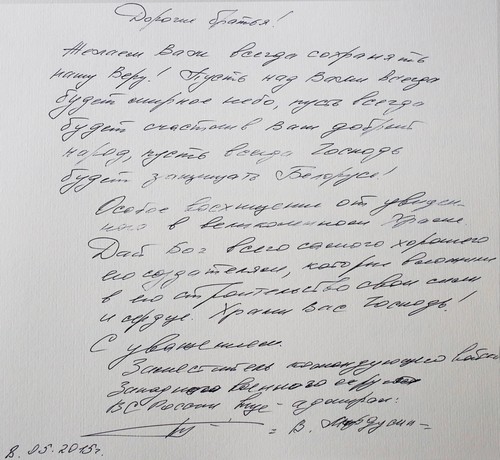 Дорогие братья!
Желаем Вам всегда сохранять
нашу Веру! Пусть над Вами всегда
будет мирное небо, пусть всегда
будет счастлив Ваш добрый
народ, пусть всегда Господь
будет защищать Беларусь!
Особое восхищение от увиден-
ного в великолепном Храме
Дай Бог всего самого хорошего
его создателям, которые вложили
в его строительство свои силы
и сердце. Храни Вас Господь!
С уважением.
Заместитель командующего войсками
Западного военного округа
ВС России вице-адмирал:
= В.
8.05.2015г.